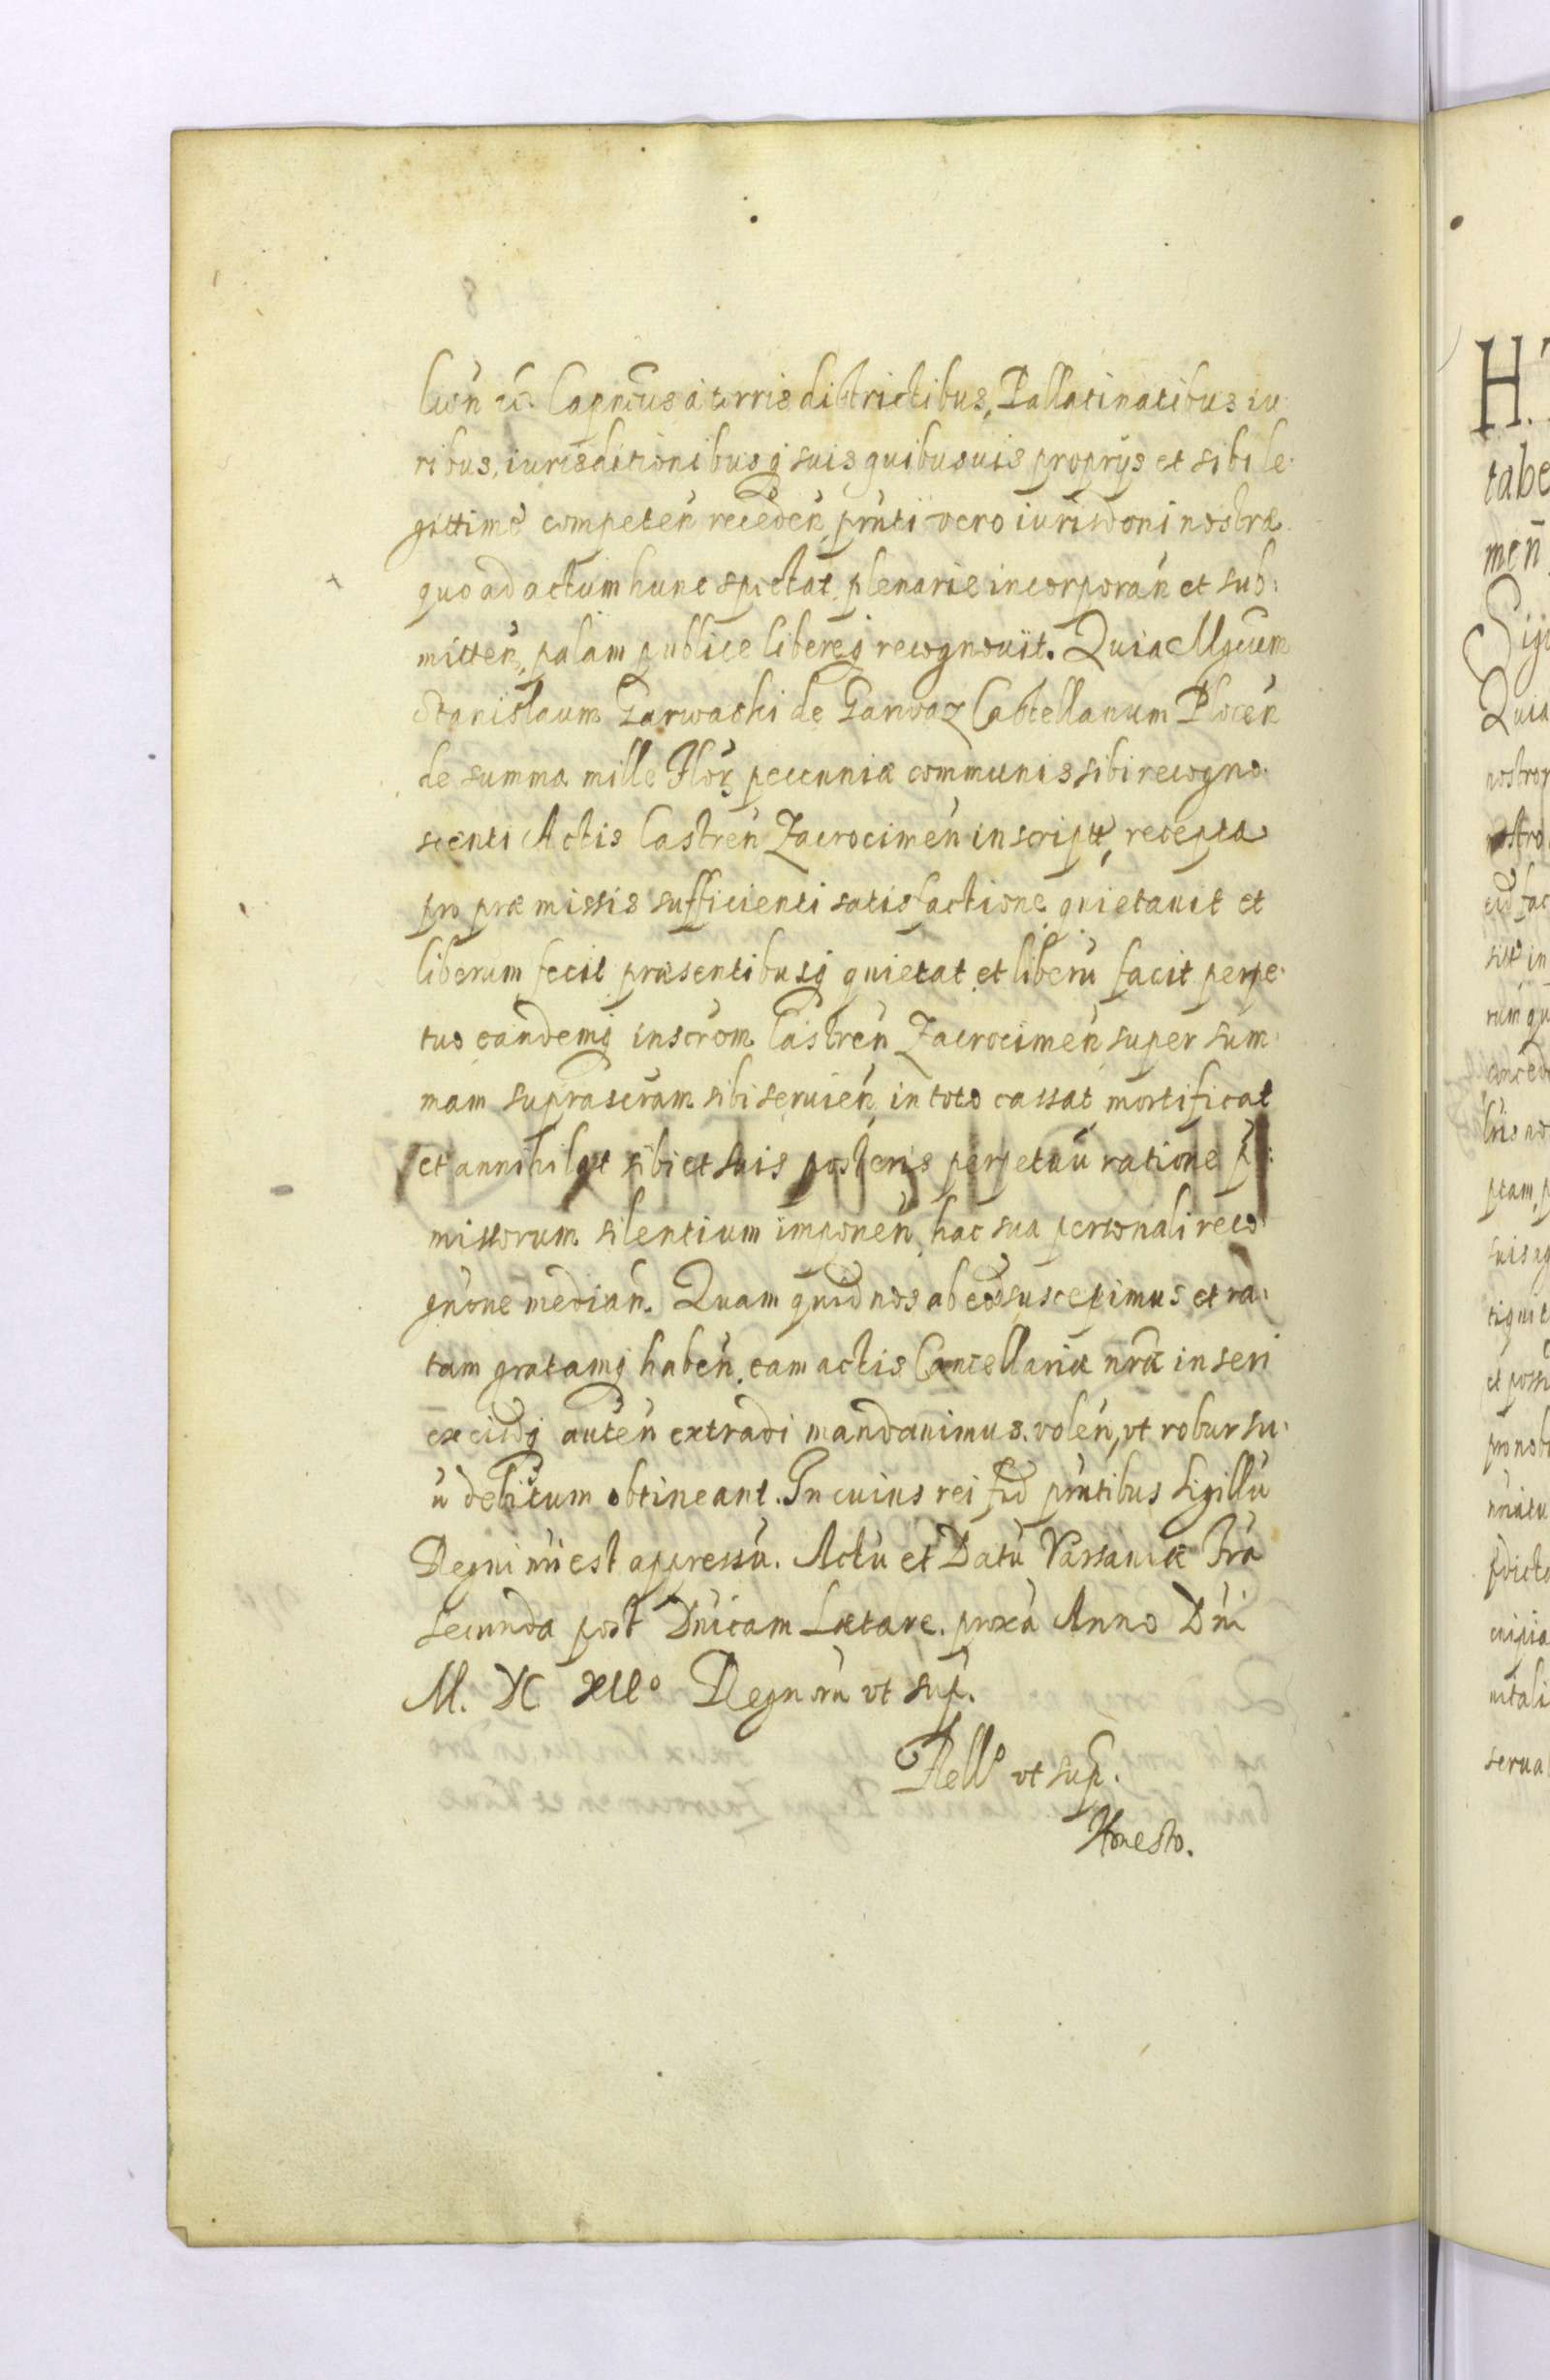 Capneus a terris districtibus, Pallatinatibus iu
ribus, iurisditionibusq suis quibusuis proprijs et sibi le
gittime competen̄ receden̄, pn̄ti vero iurisdoni nostræ
quo ad actum hunc spectat plenarie incorporan̄ et sub:
mitten̄, palam publice libereq recognouit. Quia Mgcum
Stanislaum Garwaski de Garwaz Castellanum Plocen̄
de summa mille Flor pecunniæ communis sibi recogno
scenti Actis Castren̄ Zacrocimen̄ inscript, recepta
pro præmissis sufficienti satisfactione quietauit et
liberum fecit præsentibusq quietat et liberū facit perpe
tuo eandemq inscrom Castren̄ Zacrocimen̄ super sum
mam suprascram sibi seruien̄ in toto cassat mortificat
et annihilat sibi et suis posteris perpetuū ratione p:
missorum silentium imponen̄, hac sua personali reco
gn̄one median̄. Quam quid nos ab eo suscepimus et ra:
tam gratamq haben̄, eam actis Cancellariæ nr̄æ inseri
ex eisdq auten̄ extradi mandauimus. volen̄, vt robur su:
ū debitum obtineant. In cuius rei fid pn̄tibus Sigillū
Regni nr̄i est appressū. Actū et Datū Varsauiæ Fra
secunda post Dn̄icam Lætare. proxā Anno Dn̄i
M. DC XLI° Regnorū vt sup.
Rell° vt sup.

H.
tabe
men̄
Sigi
Quia